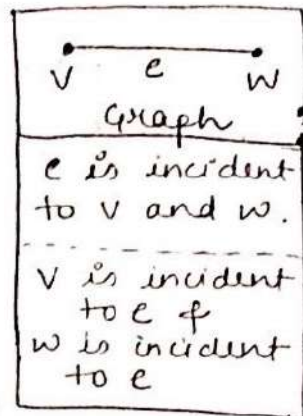 e
V W
Graph
e is incident
to V and W.
V is incident
to e &
W is incident
to e